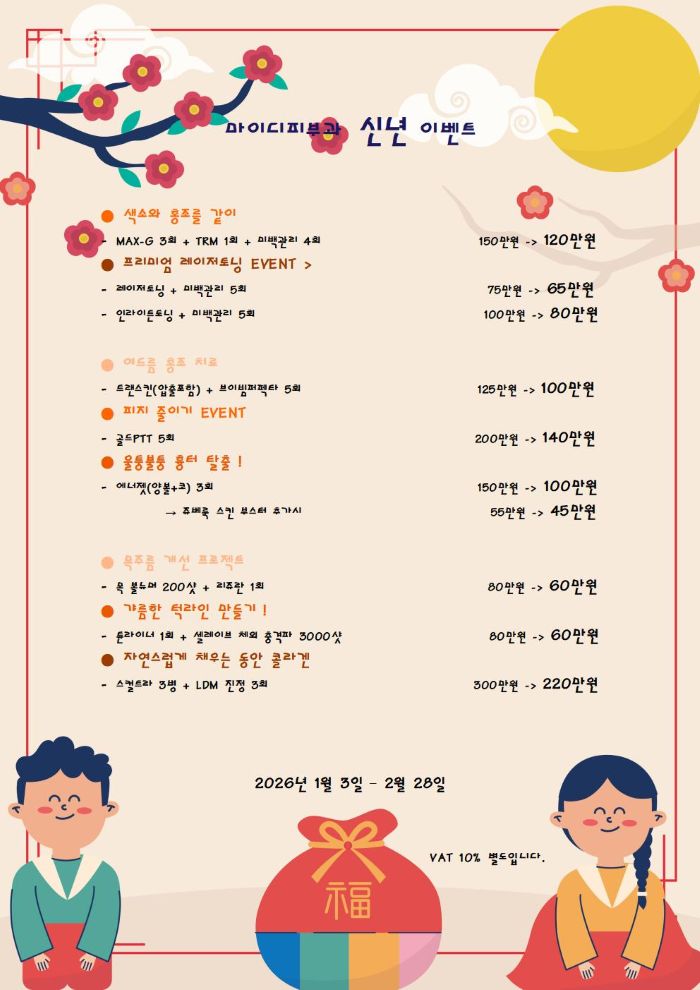 마이디피부과 신년 이벤트
● 색소와 홍조를 같이
- MAX-G 3회 + TRM 1회 + 미백관리 4회 150만원 -> 120만원
● 프리미엄 레이저토닝 EVENT >
- 레이저토닝 + 미백관리 5회 75만원 -> 65만원
- 인라이튼토닝 + 미백관리 5회 100만원 -> 80만원
● 여드름 홍조 치료
- 트랜스킨(압출포함) + 브이빔퍼펙타 5회 125만원 -> 100만원
● 피지 줄이기 EVENT
- 골드PTT 5회 200만원 -> 140만원
● 울퉁불퉁 흉터 탈출 !
- 에너젯(양볼+코) 3회 150만원 -> 100만원
→ 쥬베룩 스킨 부스터 추가시 55만원 -> 45만원
● 목주름 개선 프로젝트
- 목 볼뉴머 200샷 + 리쥬란 1회 80만원 -> 60만원
● 갸름한 턱라인 만들기 !
- 튠라이너 1회 + 셀레이브 체외 충격파 3000샷 80만원 -> 60만원
● 자연스럽게 채우는 동안 콜라겐
- 스컬트라 3병 + LDM 진정 3회 300만원 -> 220만원
2026년 1월 3일 - 2월 28일
VAT 10% 별도입니다.
福